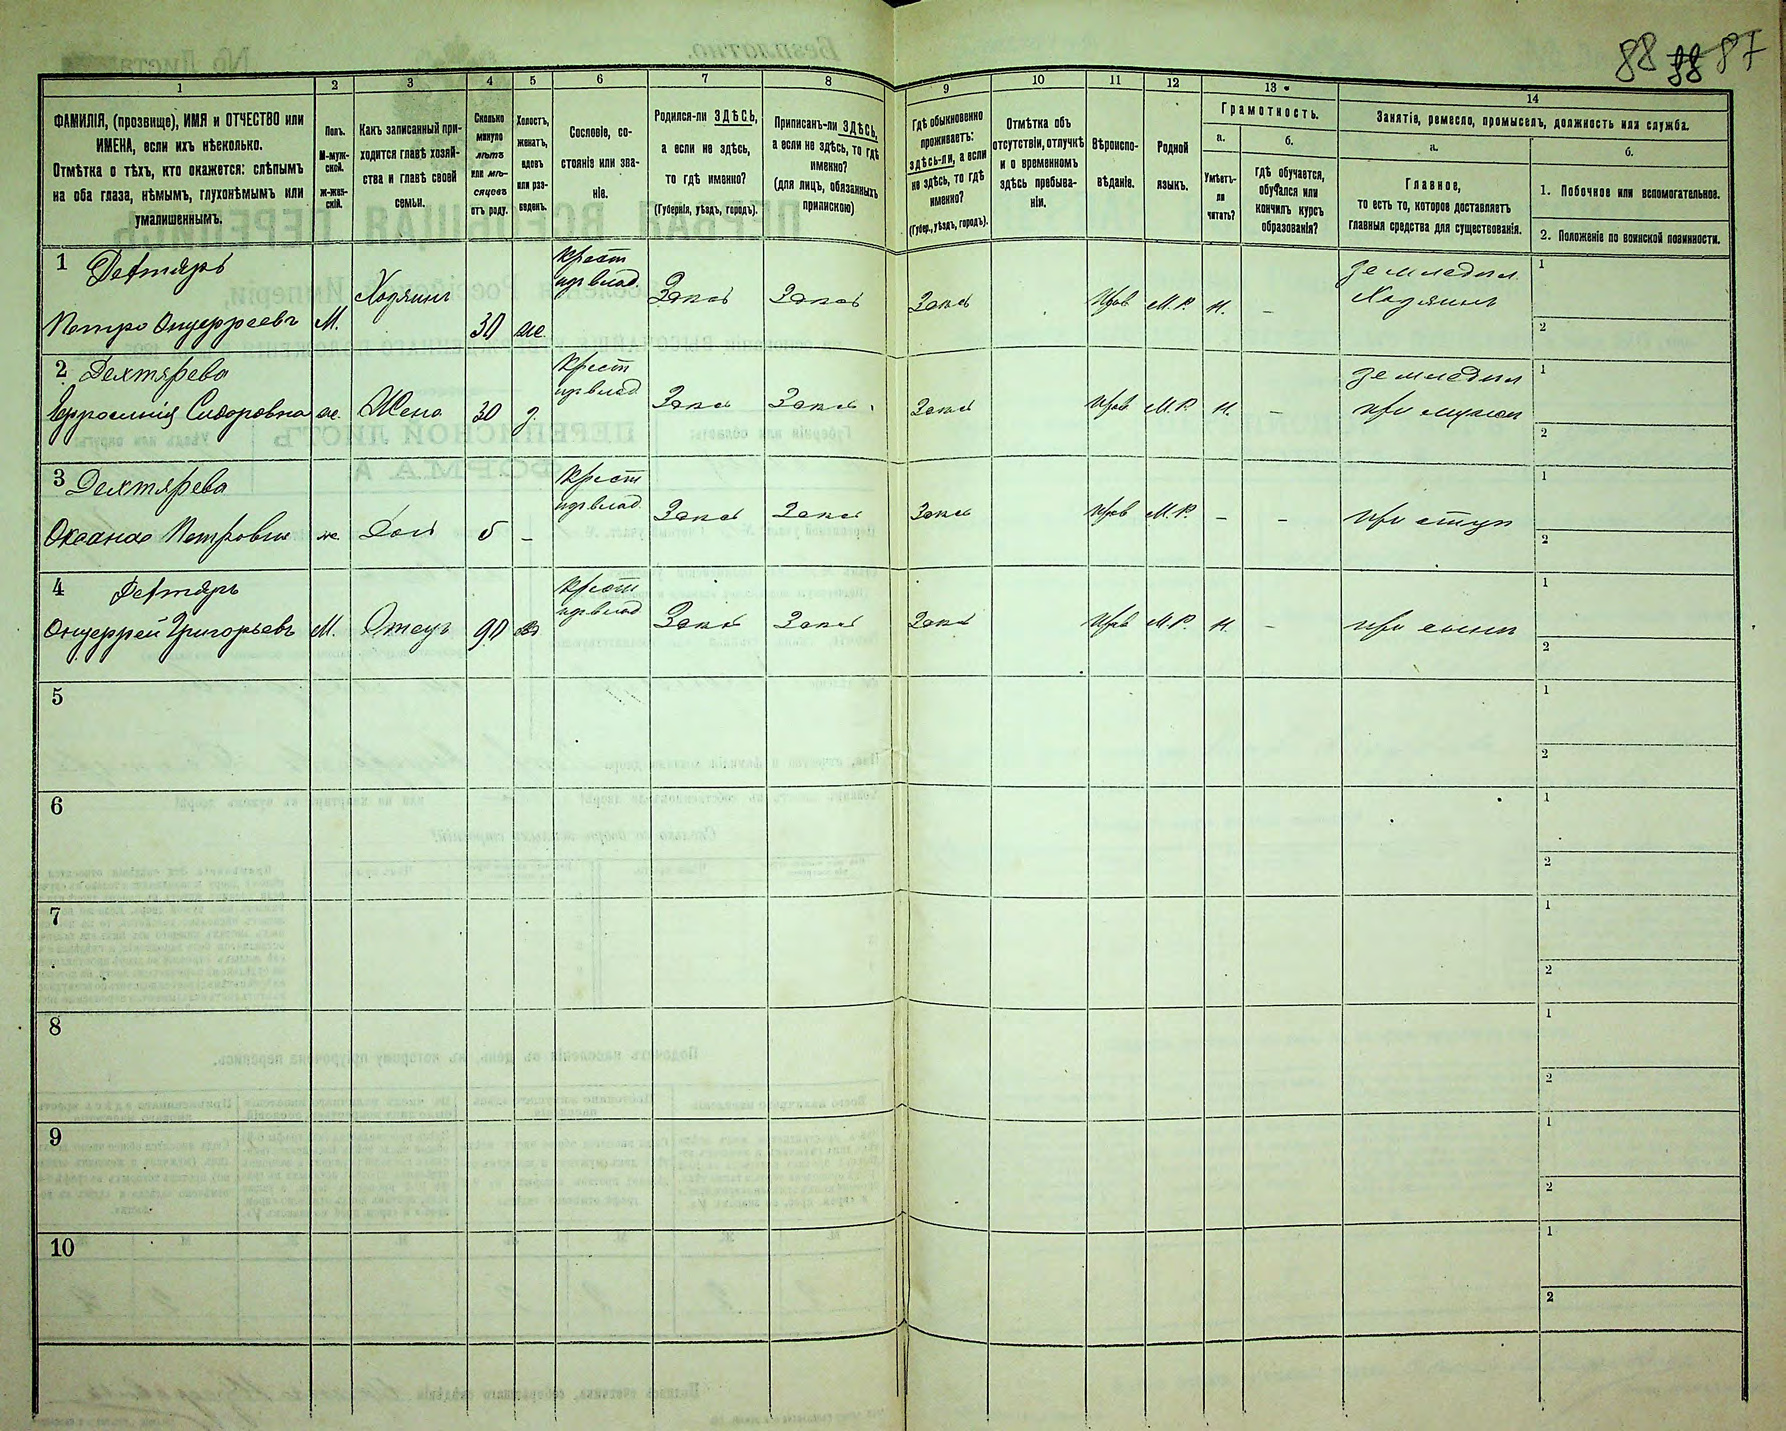 88 88 87
1
2
3
4
5
6
7
8
9
10
11
12
13
14
ФАМИЛІЯ, (прозвище), ИМЯ и ОТЧЕСТВО или
ИМЕНА, если ихъ нѣсколько.
Отмѣтка о тѣхъ, кто окажется: слѣпымъ
на оба глаза, нѣмымъ, глухонѣмымъ или
умалишеннымъ.
Полъ.
М-муж-
ской.
ж-жен-
скій.
Какъ записанный при-
ходится главѣ хозяй-
ства и главѣ своей
семьи.
Сколько
минуло
лѣтъ
или мѣ-
сяцевъ
отъ роду.
Холостъ,
женатъ,
вдовъ
или раз-
веденъ.
Сословіе, со-
стояніе или зва-
ніе.
Родился-ли ЗДѢСЬ,
а если не здѣсь,
то гдѣ именно?
(Губернія, уѣздъ, городъ).
Приписанъ-ли ЗДѢСЬ,
а если не здѣсь, то гдѣ
именно?
(для лицъ, обязанныхъ
припискою)
Гдѣ обыкновенно
проживаетъ:
здѣсь-ли, а если
не здѣсь, то гдѣ
именно?
(Губер., уѣздъ, городъ).
Отмѣтка объ
отсутствіи, отлучкѣ
и о временномъ
здѣсь пребыва-
ніи.
Вѣроиспо-
вѣданіе.
Родной
языкъ.
Грамотность.
а.
б.
Умѣетъ-
ли
читать?
Гдѣ обучается,
обучался или
кончилъ курсъ
образованія?
Занятіе, ремесло, промыселъ, должность или служба.
а.
б.
Главное,
то есть то, которое доставляетъ
главныя средства для существованія.
1. Побочное или вспомогательное.
2. Положеніе по воинской повинности.
1 Дехтярь
Петро Ондерреевъ М. Хозяинъ 30 же. Крест из влад. Здесь Здесь Здесь Прав М. Р. Н. – земледел Хозяинъ 1 2
2 Дехтярева
Сидоровна же. Жена 30 з. Крест из влад Здесь Здесь Здесь Прав М. Р. Н. – земледел при мужи 1 2
3 Дехтярева
Оксана Петровна же. Доч 5 – Крест из влад Здесь Здесь Здесь Прав М. Р. – – при отцу 1 2
4 Дехтярь
Ондеррей Григорьевъ М. Отецъ 90 Вд Крест из влад Здесь Здесь Здесь Прав М. Р. Н. – при сыни 1 2
5 1 2
6 1 2
7 1 2
8 1 2
9 1 2
10 1 2